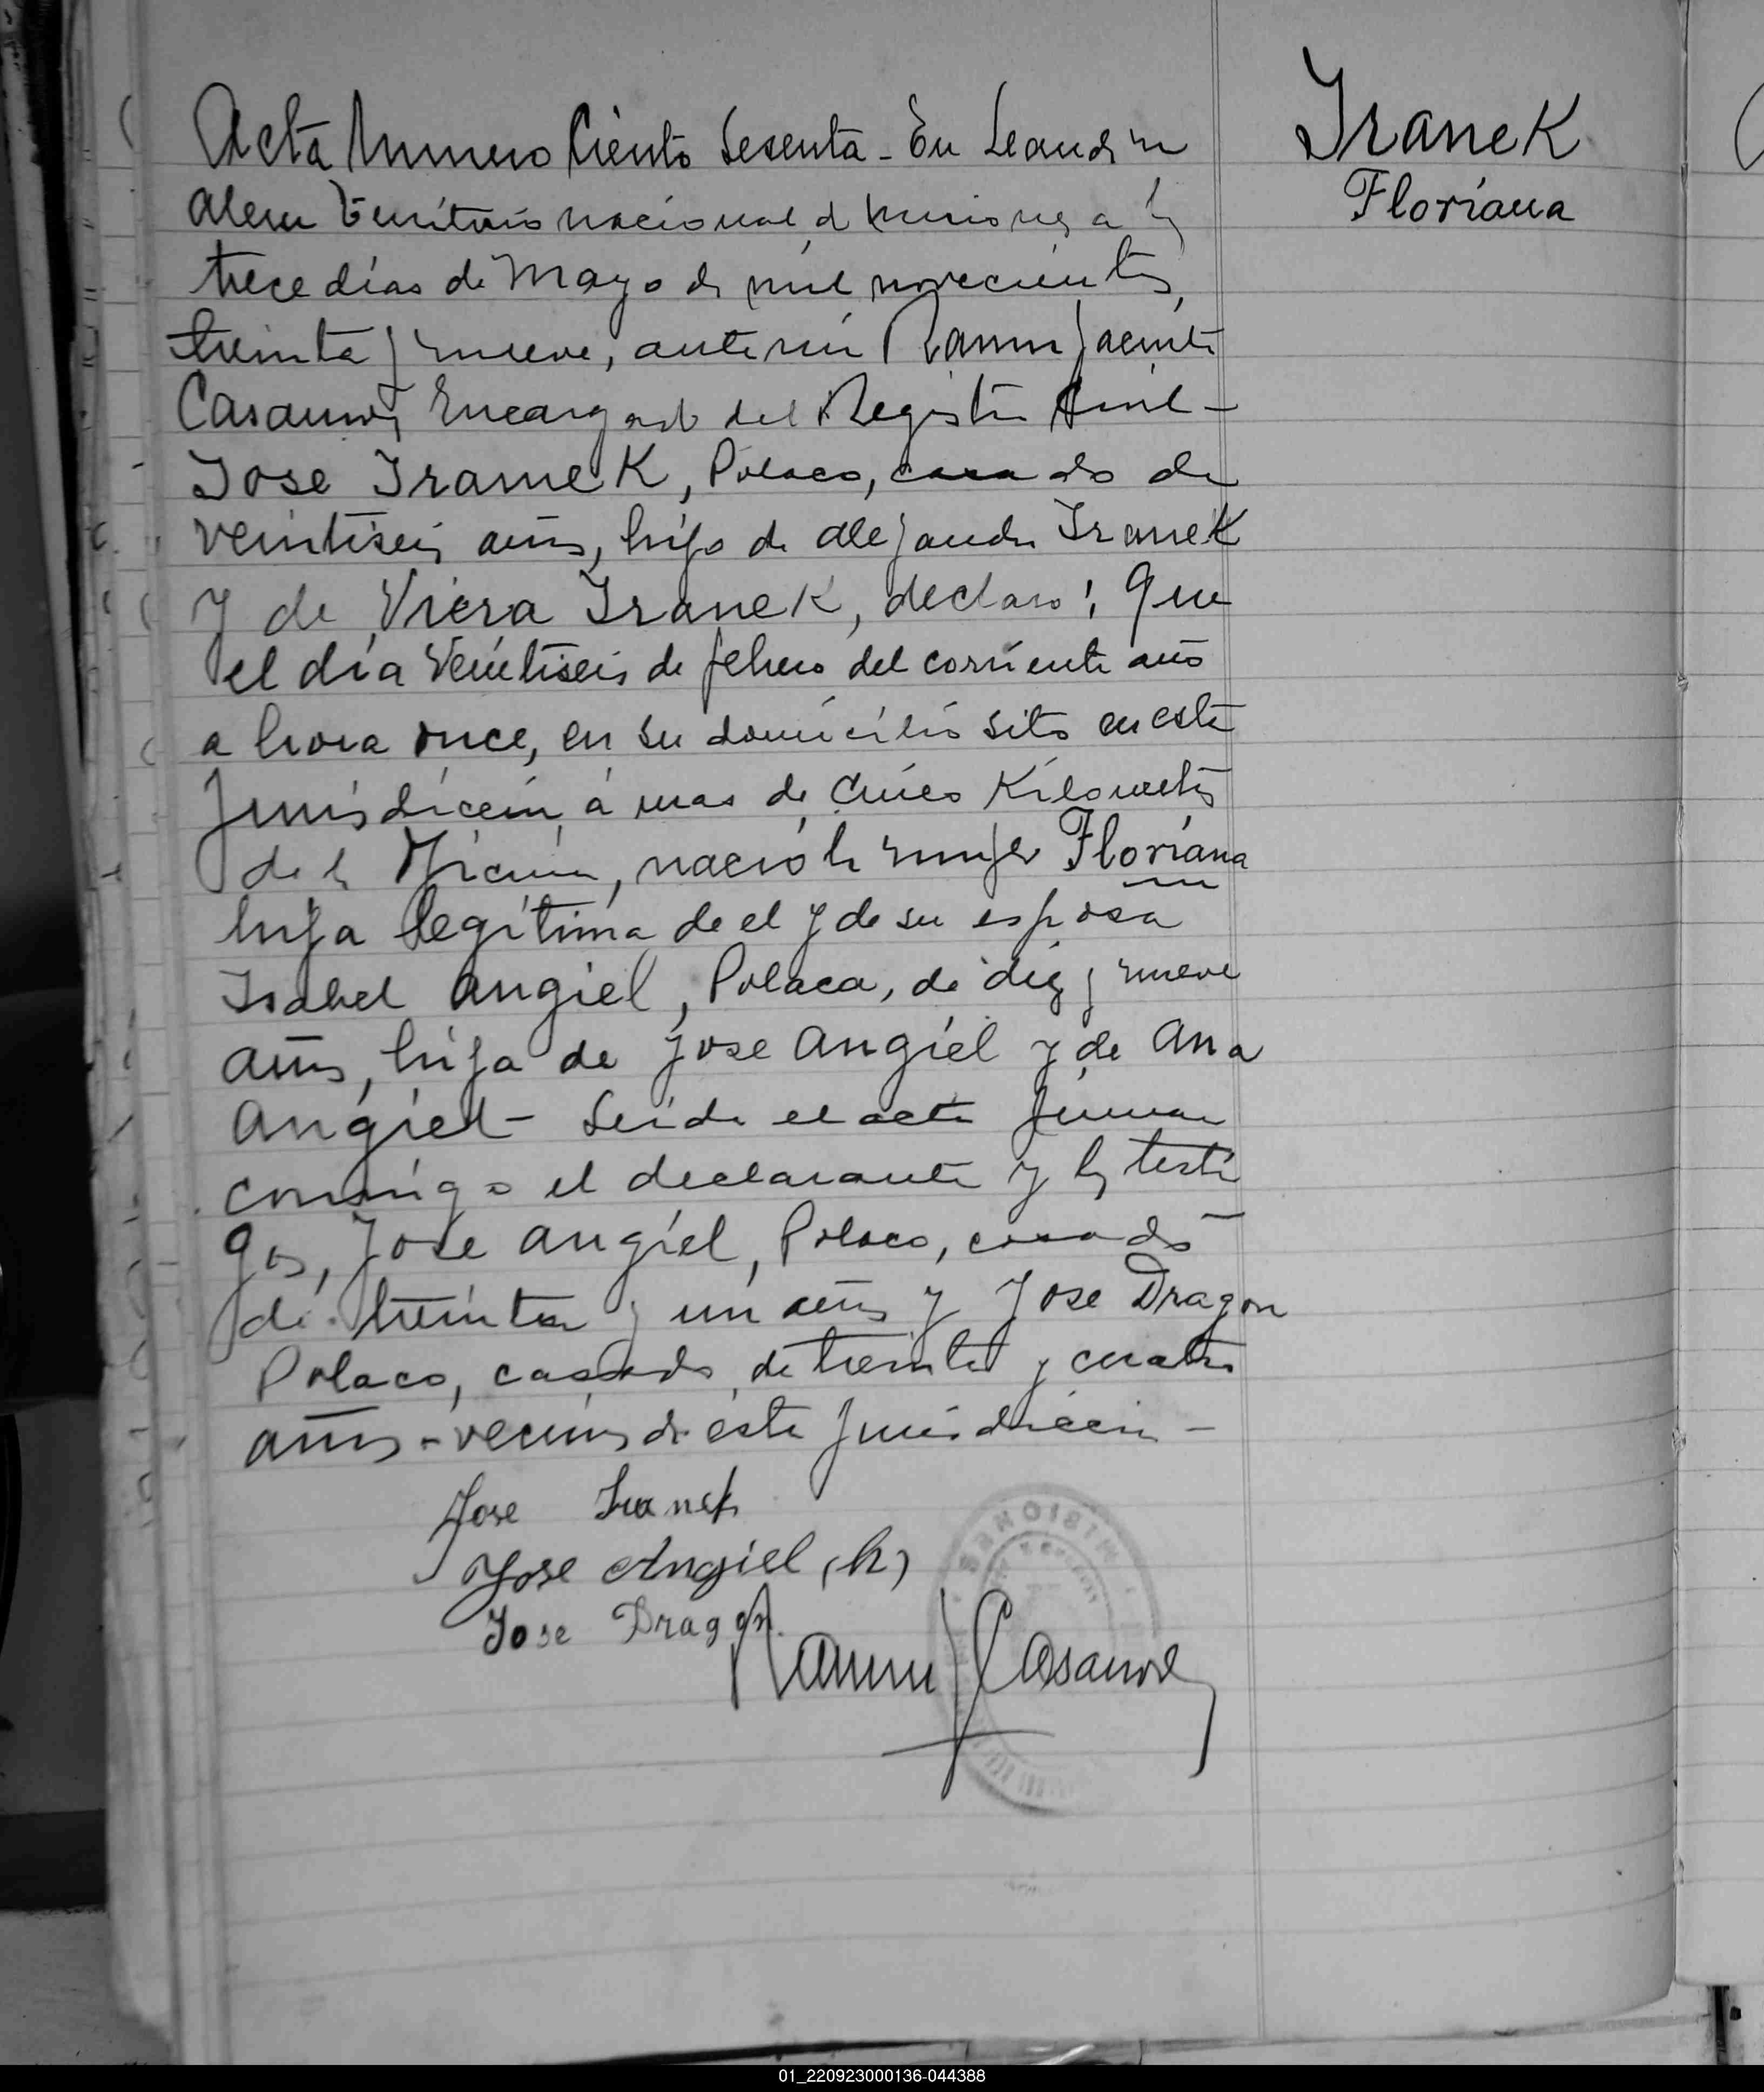 Acta Numero Ciento Sesenta - En Leandr n
Alem Territorio nacional d Misiones a ls
trece dias de Mayo de mil novecientos
treinta y nueve, ante mi Ramon Jacinto
Casanova Encargado del Registro Civil -
Jose Iranek, Polaco, casado de
veintiseis años, hijo de Alejandro Iranek
y de Viera Iranek, declaro: Que
el día Veintiseis de febrero del corriente año
a hora once, en su domicilio sito en esta
Jurisdiccion a mas de cinco Kilometros
de la Oficina, nació la mujer Floriana
hija legítima de el y de su esposa
Isabel Angiel, Polaca, de diez y nueve
años, hija de Jose Angiel y de Ana
Angiel - Leida el acta firman
conmigo el declarante y ls testi
gos, Jose Angiel, Polaco, casado -
de treinta y un años y Jose Dragon
Polaco, casado, de treinta y cuatro
años - vecinos de esta Jurisdiccion -
Jose Iranek
Jose Angiel (h)
Jose Dragon.
Ramon J Casanova
Iranek
Floriana
MISIONES
01_220923000136-044388